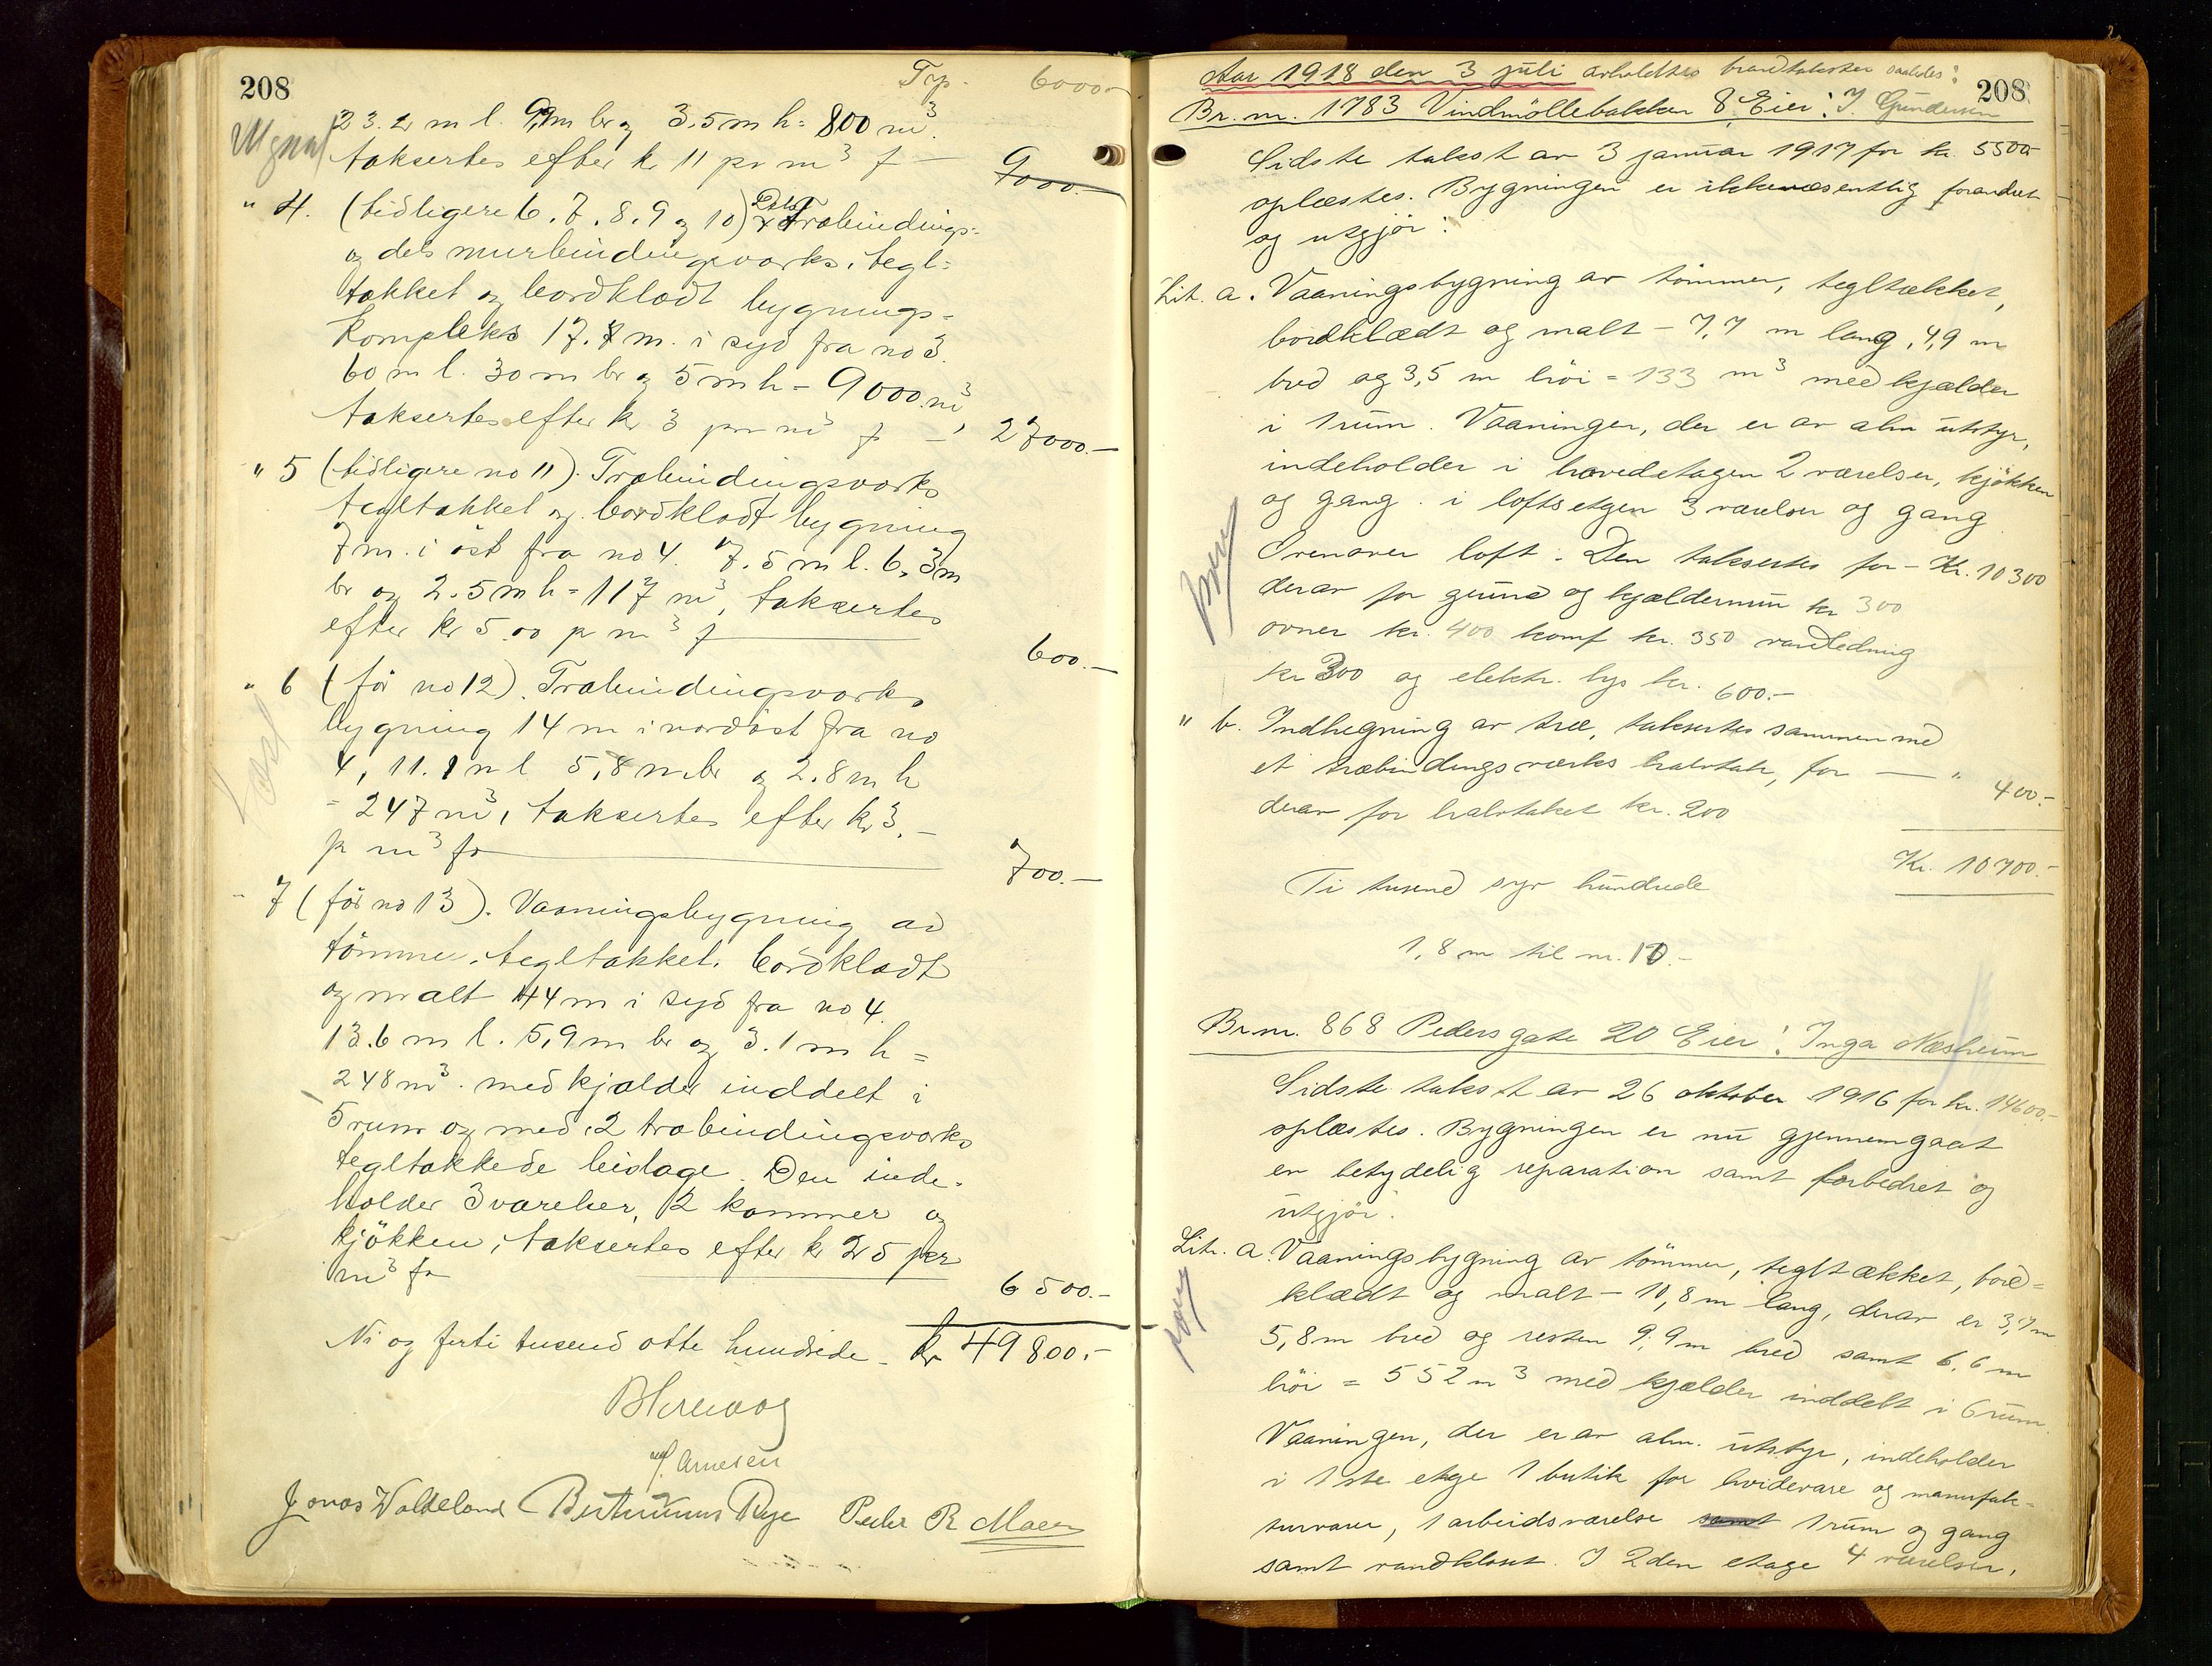 208
Trp. 6000.-
23.2 m l. 9,9m br og 3.5m h = 800 m³.
taksertes efter kr 11 pr m³ f — 9000.-
" 4. (tidligere 6. 7. 8. 9 og 10) Dels Træbindings-
og dels murbindingsværks, tegl-
tækket og bordklædt bygnings-
kompleks 17.8 m. i syd fra no 3.
60 m l. 30 m br og 5 m h = 9000 m³,
taksertes efter kr 3 pr m³ f — 27000.-
" 5 (tidligere no 11). Træbindingsværks
tegltækket og bordklædt bygning
7 m. i øst fra no 4. 7.5 m l. 6,3m
br og 2.5 m h = 117 m³, taksertes
efter kr 5.00 p m³ f — 600.-
" 6 (før no 12). Træbindingsværks
bygning 14 m i nordøst fra no
4, 11.1 m l 5,8 m br og 2.8 m h
= 247 m³, taksertes efter kr 3.-
p m³ fr — 700.-
- 7 (før no 13). Vaaningsbygning av
tömmer, tegltækket, bordklædt
og malt 44 m i syd fra no 4.
13.6 m l. 5,9 m br og 3.1 m h =
248 m³. med kjælder inddelt i
5 rum og med 2 træbindingsværks
tegltækkede bislage. Den inde-
holder 3 værelser, 2 kammer og
kjøkken, taksertes efter kr 25 per
m³ fr 6500.-
Ni og førti tusend otte hundrede - kr 49800.-
Arnesen
Jonas Waldeland Peder R
208
Aar 1918 den 3 juli avholdtes brandtakster saaledes:
Br. nr. 1783 Vindmöllebakken 8. Eier: J. Gundersen
Sidste takst av 3 januar 1917 for kr. 5500-
oplæstes. Bygningen er ikke væsentlig forandret
og utgjör:
Lit. a. Vaaningsbygning av tömmer, tegltækket,
bordklædt og malt - 7,7 m lang, 4,9 m
bred og 3,5 m höi = 133 m³ med kjælder
i 1 rum. Vaaningen, der er av alm utstyr,
indeholder i hovedetagen 2 værelser, kjökken
og gang. i loftsetgen 3 værelser og gang
Ovenover loft. Den taksertes for - Kr. 10300
derav for grund og kjælderrum kr 300
ovner kr. 400 komf kr. 350 vandledning
kr 300 og elektr. lys kr. 600.-
" b. Indhegning av træ, taksertes sammen med
et træbindingsværks halvtak, for — " 400.-
derav for halvtaket kr. 200
Kr. 10700.-
Ti tusend syv hundrede
1,8 m til nr. 10.-
Br. nr. 868 Pedersgate 20 Eier: Inga Næsheim
Sidste takst av 26 oktober 1916 for kr. 14600.-
oplæstes. Bygningen er nu gjennemgaat
en betydelig reparation samt forbedret og
utgjör.
Litr. a. Vaaningsbygning av tömmer, tegltækket, bord-
klædt og malt - 10,8 m lang, derav er 3,7 m
5,8 m bred og resten 9,9 m bred samt 6,6 m
höi = 552 m³ med kjælder inddelt i 6 rum
Vaaningen, der er av alm. utstyr, indeholder
i 1ste etge 1 butik for hvidevare og manufak-
turvarer, 1 arbeidsværelse samt 1 rum og gang
samt vandkloset. I 2den etage 4 værelser,